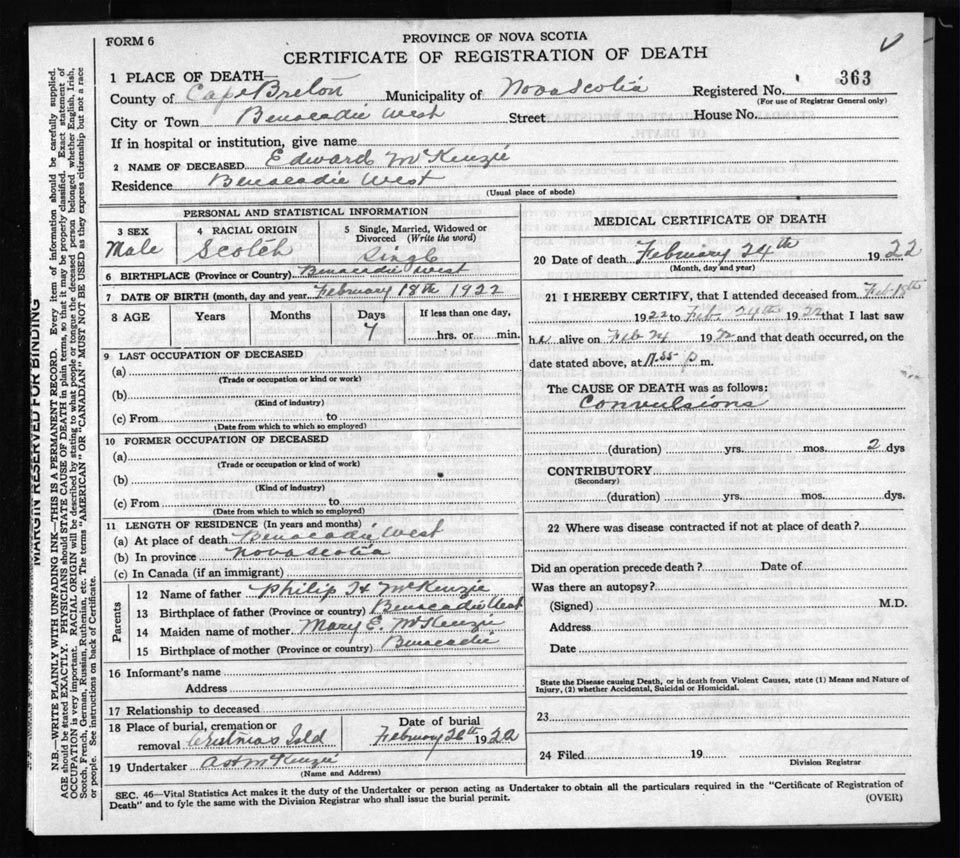 FORM 6
PROVINCE OF NOVA SCOTIA
CERTIFICATE OF REGISTRATION OF DEATH
1 PLACE OF DEATH—
County of Cape Breton Municipality of Nova Scotia Registered No. 363
(For use of Registrar General only)
City or Town Benacadie West Street House No.
If in hospital or institution, give name
2 NAME OF DECEASED Edward McKenzie
Residence Benacadie West
(Usual place of abode)
PERSONAL AND STATISTICAL INFORMATION
3 SEX
Male
4 RACIAL ORIGIN
Scotch
5 Single, Married, Widowed or Divorced (Write the word)
Single
6 BIRTHPLACE (Province or Country) Benacadie West
7 DATE OF BIRTH (month, day and year) February 18th 1922
8 AGE Years Months Days If less than one day,
7 hrs. or min.
9 LAST OCCUPATION OF DECEASED
(a)
(Trade or occupation or kind or work)
(b)
(Kind of industry)
(c) From to
(Date from which to which so employed)
10 FORMER OCCUPATION OF DECEASED
(a)
(Trade or occupation or kind of work)
(b)
(Kind of industry)
(c) From to
(Date from which to which so employed)
11 LENGTH OF RESIDENCE (In years and months)
(a) At place of death Benacadie West
(b) In province Nova Scotia
(c) In Canada (if an immigrant)
Parents
12 Name of father Philip H McKenzie
13 Birthplace of father (Province or country) Benacadie West
14 Maiden name of mother Mary E. McKenzie
15 Birthplace of mother (Province or country) Benacadie
16 Informant's name
Address
17 Relationship to deceased
18 Place of burial, cremation or
removal Christmas Isld
Date of burial
February 26th 1922
19 Undertaker McKenzie
(Name and Address)
MEDICAL CERTIFICATE OF DEATH
20 Date of death February 24th 1922
(Month, day and year)
21 I HEREBY CERTIFY, that I attended deceased from Feb 18th
1922 to Feb. 24th 1922 that I last saw
h alive on Feb 24 19 22 and that death occurred, on the
date stated above, at 11.55 P m.
The CAUSE OF DEATH was as follows:
Convulsions
(duration) yrs. mos. 2 dys
CONTRIBUTORY
(Secondary)
(duration) yrs. mos. dys.
22 Where was disease contracted if not at place of death?
Did an operation precede death? Date of
Was there an autopsy?
(Signed) M.D.
Address
Date
State the Disease causing Death, or in death from Violent Causes, state (1) Means and Nature of
Injury, (2) whether Accidental, Suicidal or Homicidal.
23
24 Filed 19
Division Registrar
SEC. 46—Vital Statistics Act makes it the duty of the Undertaker or person acting as Undertaker to obtain all the particulars required in the "Certificate of Registration of
Death" and to fyle the same with the Division Registrar who shall issue the burial permit.
(OVER)
MARGIN RESERVED FOR BINDING
N.B.—WRITE PLAINLY WITH UNFADING INK—THIS IS A PERMANENT RECORD. Every item of information should be carefully supplied.
AGE should be stated EXACTLY. PHYSICIANS should STATE CAUSE OF DEATH in plain terms, so that it may be properly classified. Exact statement of
OCCUPATION is very important. RACIAL ORIGIN will be described by stating to what people or tongue the deceased person belonged whether English, Irish,
Scotch, French, German, Russian, Ruthenian, etc. The terms "AMERICAN" OR "CANADIAN" MUST NOT BE USED as they express citizenship but not a race
or people. See instructions on back of Certificate.